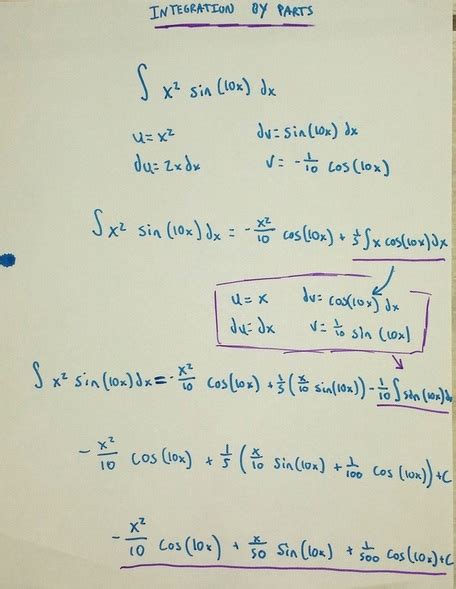 INTEGRATION BY PARTS
∫ x² sin (10x) dx
u = x² dv = sin(10x) dx
du = 2x dx v = -1/10 cos (10x)
∫ x² sin (10x) dx = -x²/10 cos(10x) + 1/5 ∫ x cos(10x) dx
u = x dv = cos(10x) dx
du = dx v = 1/10 sin (10x)
∫ x² sin(10x) dx = -x²/10 cos(10x) + 1/5 (x/10 sin(10x)) - 1/10 ∫ sin(10x) dx
-x²/10 cos (10x) + 1/5 (x/10 sin(10x) + 1/100 cos (10x)) + C
-x²/10 cos(10x) + x/50 sin(10x) + 1/500 cos(10x) + C